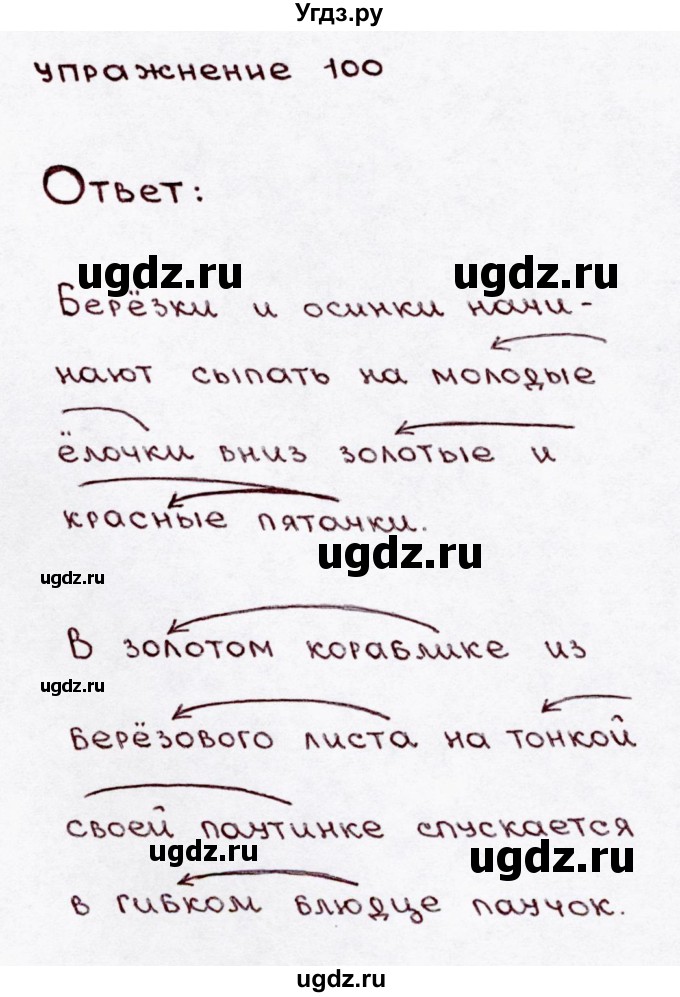 Угдз.ру
упражнение 100
Ответ:
ugdz.ru ugdz.ru
Берёзки и осинки начи-
нают сыпать на молодые
ёлочки вниз золотые и
красные пятачки.
ugdz.ru
ugdz.ru
В золотом кораблике из
ugdz.ru
берёзового листа на тонкой
своей паутинке спускается
ugdz.ru ugdz.ru
в гибком блюдце паучок.
ugdz.ru